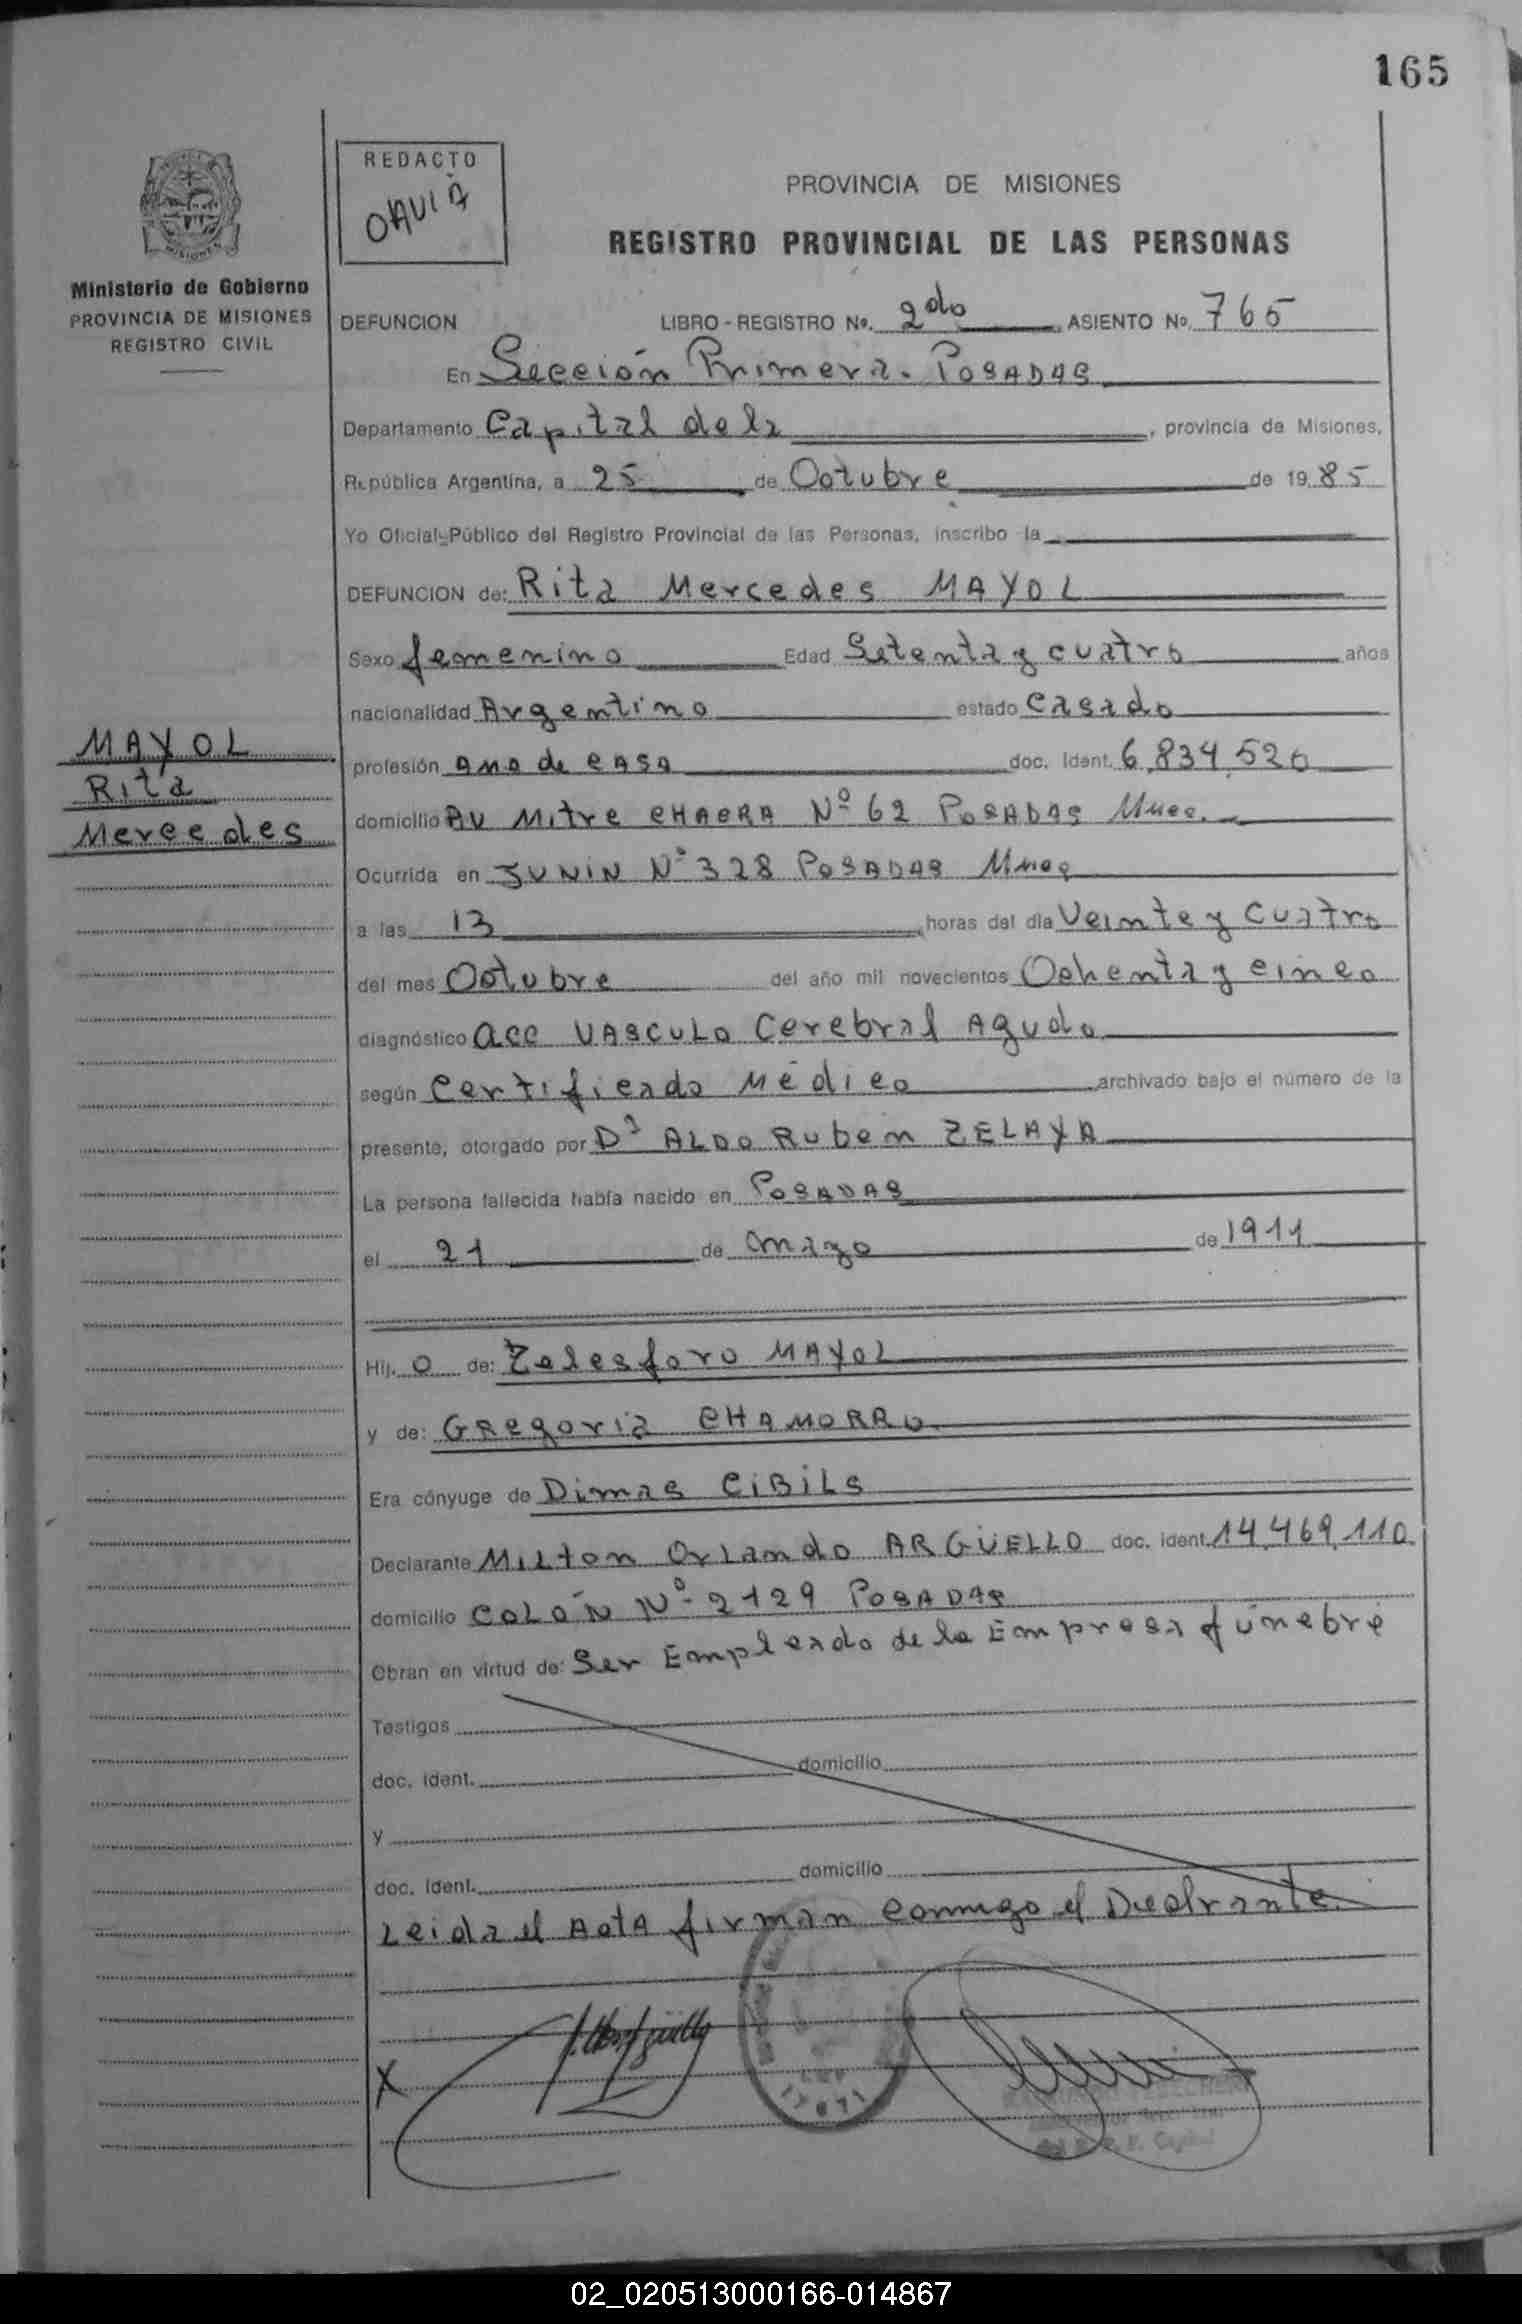 165
REDACTO
OAVIA
PROVINCIA DE MISIONES
REGISTRO PROVINCIAL DE LAS PERSONAS
MISIONES
Ministerio de Gobierno
PROVINCIA DE MISIONES
REGISTRO CIVIL
DEFUNCION LIBRO - REGISTRO No. 2do ASIENTO No. 765
En Sección Primera. POSADAS
Departamento Capital de la , provincia de Misiones,
República Argentina, a 25 de Octubre de 1985
Yo Oficial Público del Registro Provincial de las Personas, inscribo la
DEFUNCION de: Rita Mercedes MAYOL
Sexo femenino Edad Setenta y cuatro años
nacionalidad Argentino estado Casado
MAYOL
Rita
Mercedes
profesión Ama de CASA doc. Ident. 6.834.526
domicilio AV Mitre CHACRA Nº 62 POSADAS Mnes.
Ocurrida en JUNIN Nº 328 POSADAS Mnes
a las 13 horas del día Veinte y Cuatro
del mes Octubre del año mil novecientos Ochenta y cinco
diagnóstico acc VASCULO Cerebral Agudo
según Certificado Médico archivado bajo el número de la
presente, otorgado por Dr ALDO Ruben ZELAYA
La persona fallecida había nacido en POSADAS
el 21 de mayo de 1911
Hij. o de: Zelesforo MAYOL
y de: GRegoria CHAMORRO
Era cónyuge de Dimas CIBILS
Declarante MILton Orlando ARGÜELLO doc. ident. 14.469.110
domicilio COLÓN Nº 2129 POSADAS
Obran en virtud de: Ser Empleado de la Empresa fúnebre
Testigos
doc. ident. domicilio
y
doc. ident. domicilio
Leida el ActA firman conmigo el Declarante.
X
02_020513000166-014867